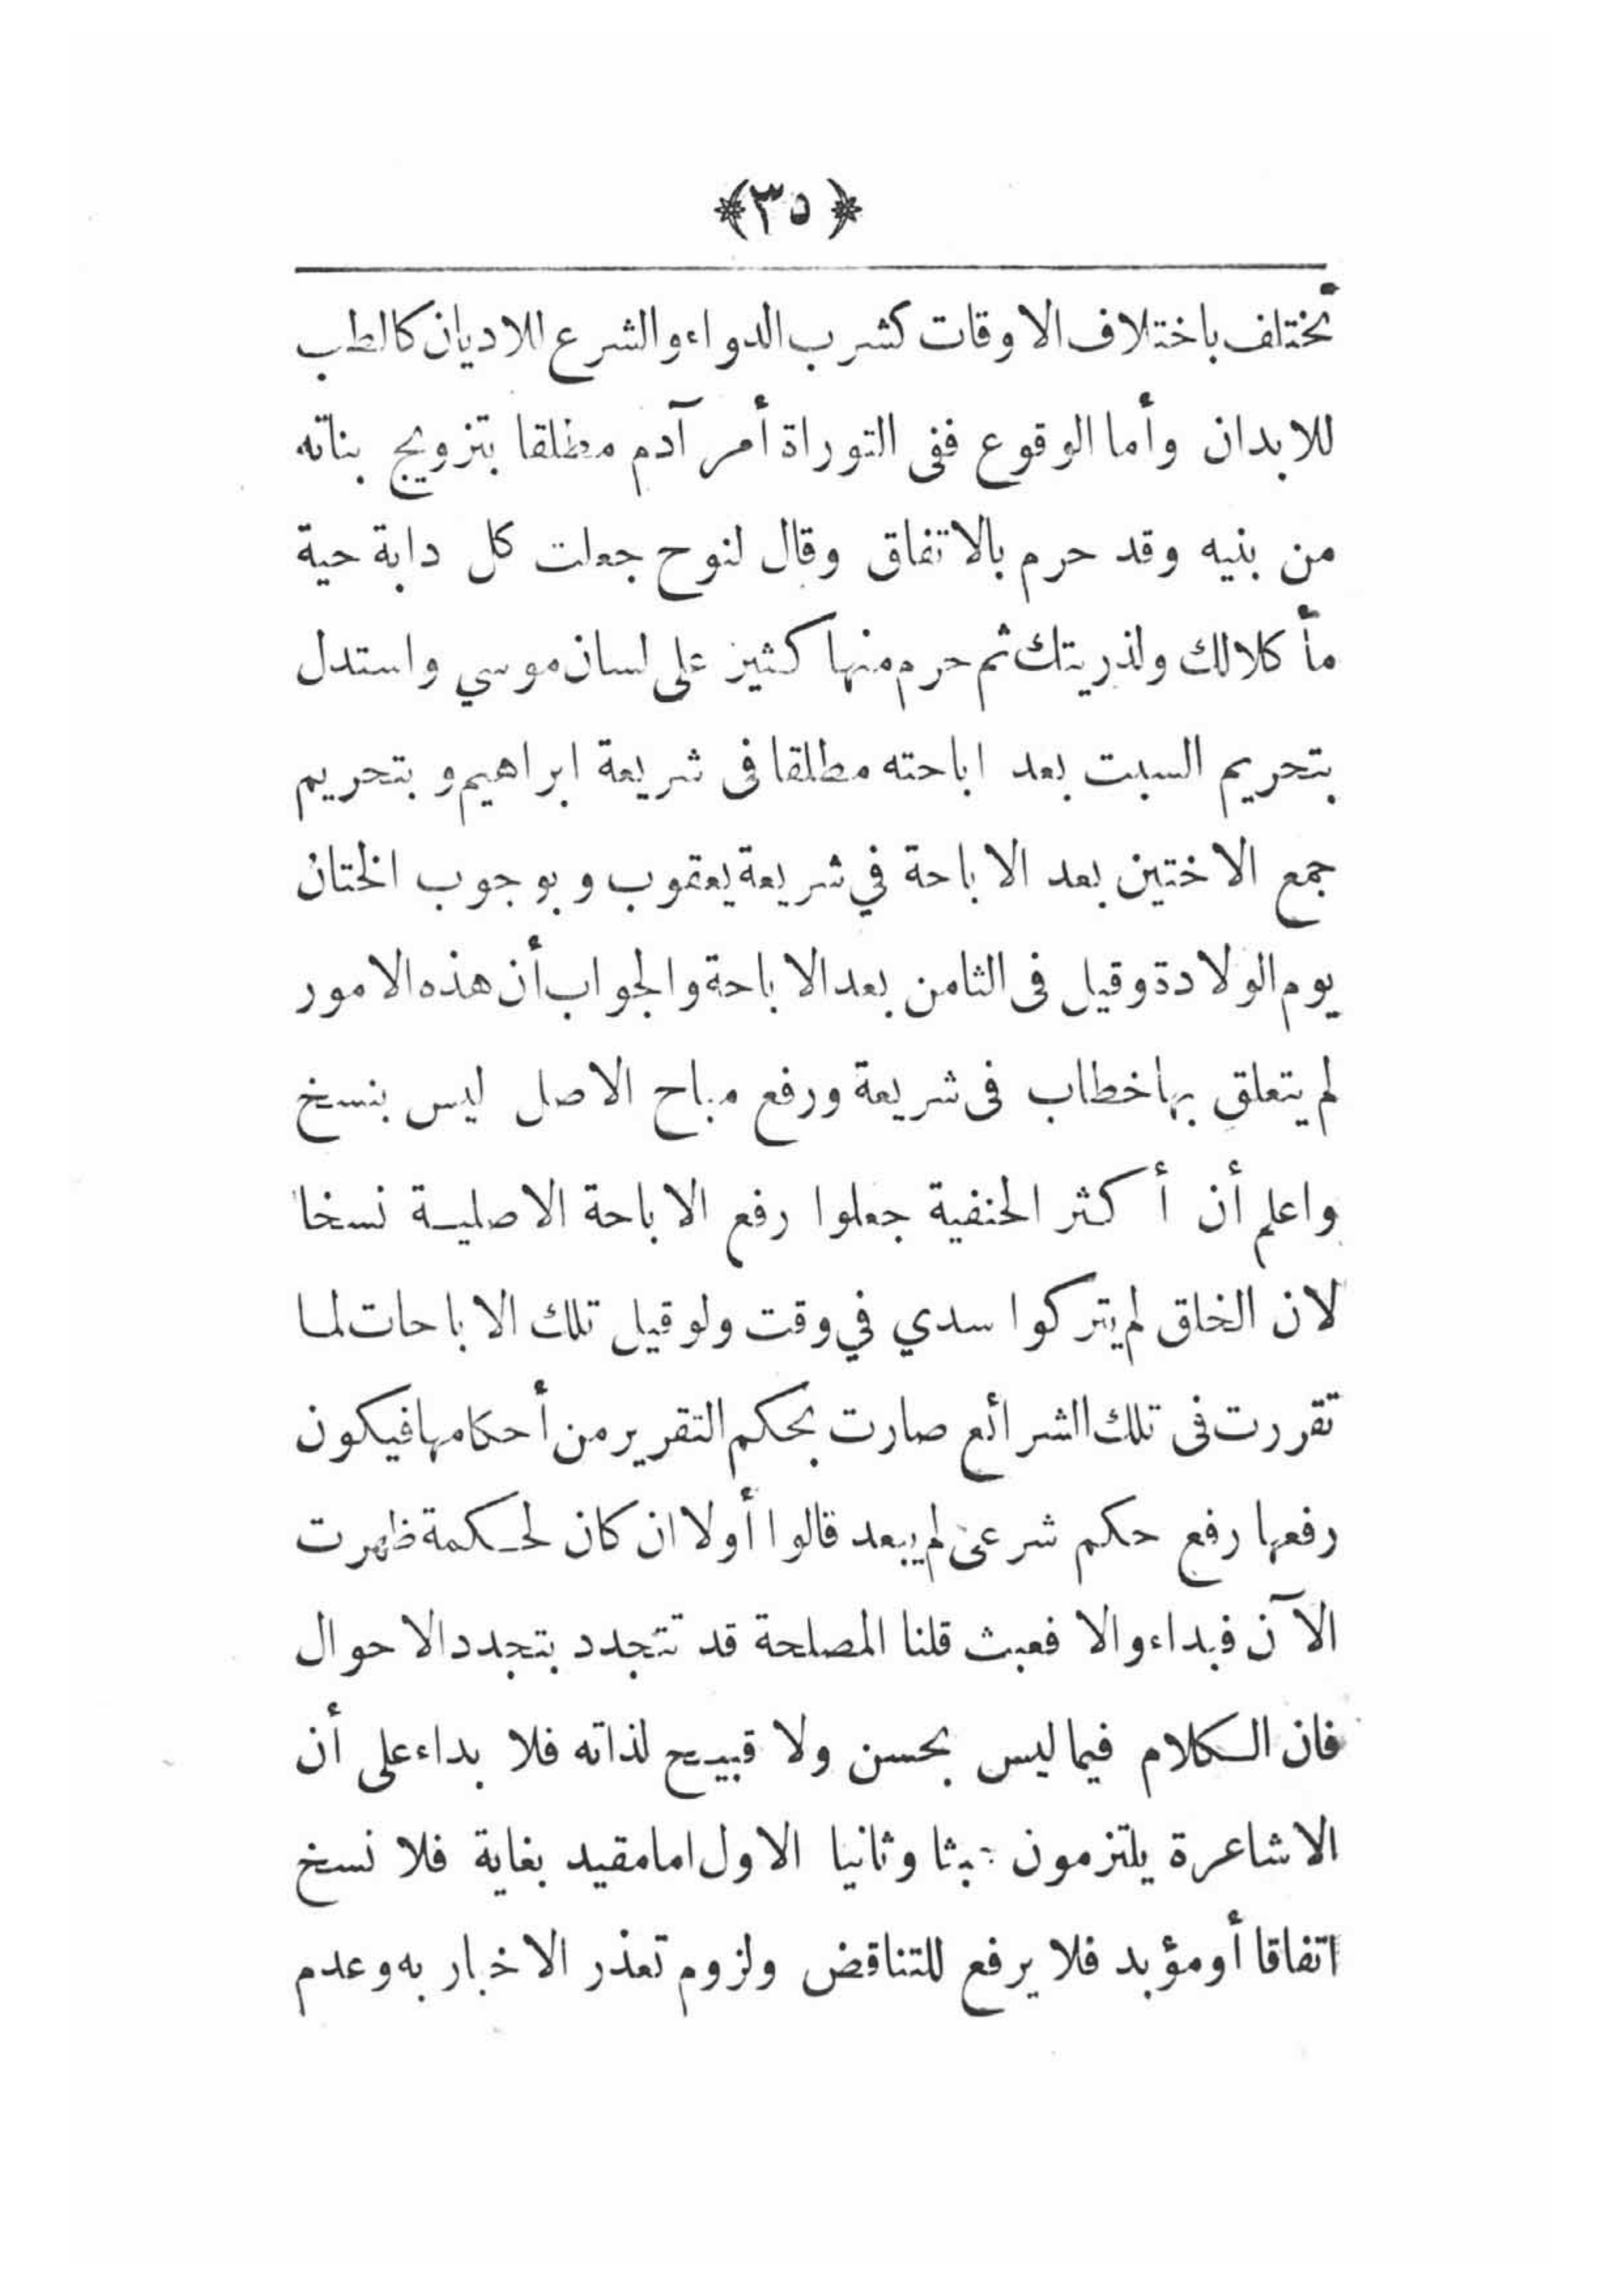 ﴿٣٥﴾
تختلف باختلاف الاوقات كشرب الدواء والشرع للاديان كالطب
للابدان وأما الوقوع ففى التوراة أمر آدم مطلقا بتزويج بناته
من بنيه وقد حرم بالاتفاق وقال لنوح جعلت كل دابة حية
مأكلا لك ولذريتك ثم حرم منها كثير على لسان موسي واستدل
بتحريم السبت بعد اباحته مطلقا فى شريعة ابراهيم وبتحريم
جمع الاختين بعد الاباحة في شريعة يعقوب وبوجوب الختان
يوم الولادة وقيل فى الثامن بعد الاباحة والجواب أن هذه الامور
لم يتعلق بها خطاب فى شريعة ورفع مباح الاصل ليس بنسخ
واعلم أن أكثر الحنفية جعلوا رفع الاباحة الاصلية نسخا
لان الخلق لم يتركوا سدي في وقت ولو قيل تلك الاباحات لما
تقررت فى تلك الشرائع صارت بحكم التقرير من أحكامها فيكون
رفعها رفع حكم شرعى لم يبعد قالوا أولا ان كان لحكمة ظهرت
الآن فبداء والا فعبث قلنا المصلحة قد تتجدد بتجدد الاحوال
فان الكلام فيما ليس بحسن ولا قبيح لذاته فلا بداء على أن
الاشاعرة يلتزمون وثانيا الاول اما مقيد بغاية فلا نسخ
اتفاقا أو مؤبد فلا يرفع للتناقض ولزوم تعذر الاخبار به وعدم